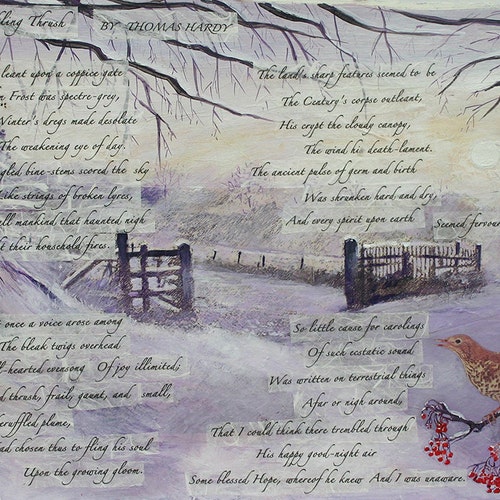 kling Thrush BY THOMAS HARDY
leant upon a coppice gate
Frost was spectre-grey,
Winter's dregs made desolate
The weakening eye of day.
gled bine-stems scored the sky
Like strings of broken lyres,
ll mankind that haunted nigh
their household fires.
The land's sharp features seemed to be
The Century's corpse outleant,
His crypt the cloudy canopy,
The wind hi death-lament.
The ancient pulse of germ and birth
Was shrunken hard and dry,
And every spirit upon earth
Seemed fervour
once a voice arose among
The bleak twigs overhead
ll-hearted evensong Of joy illimited;
d thrush, frail, gaunt, and small,
ruffled plume,
ad chosen thus to fling his soul
Upon the growing gloom.
So little cause for carolings
Of such ecstatic sound
Was written on terrestrial things
Afar or nigh around,
That I could think there trembled through
His happy good-night air
Some blessed Hope, whereof he knew And I was unaware.